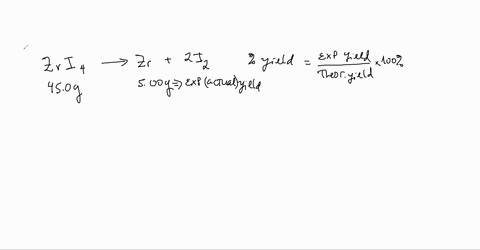 ZrI₄ → Zr + 2I₂ % yield = Exp yield / Theor. yield × 100%
45.0g 5.00g ⇒ Exp (actual) yield